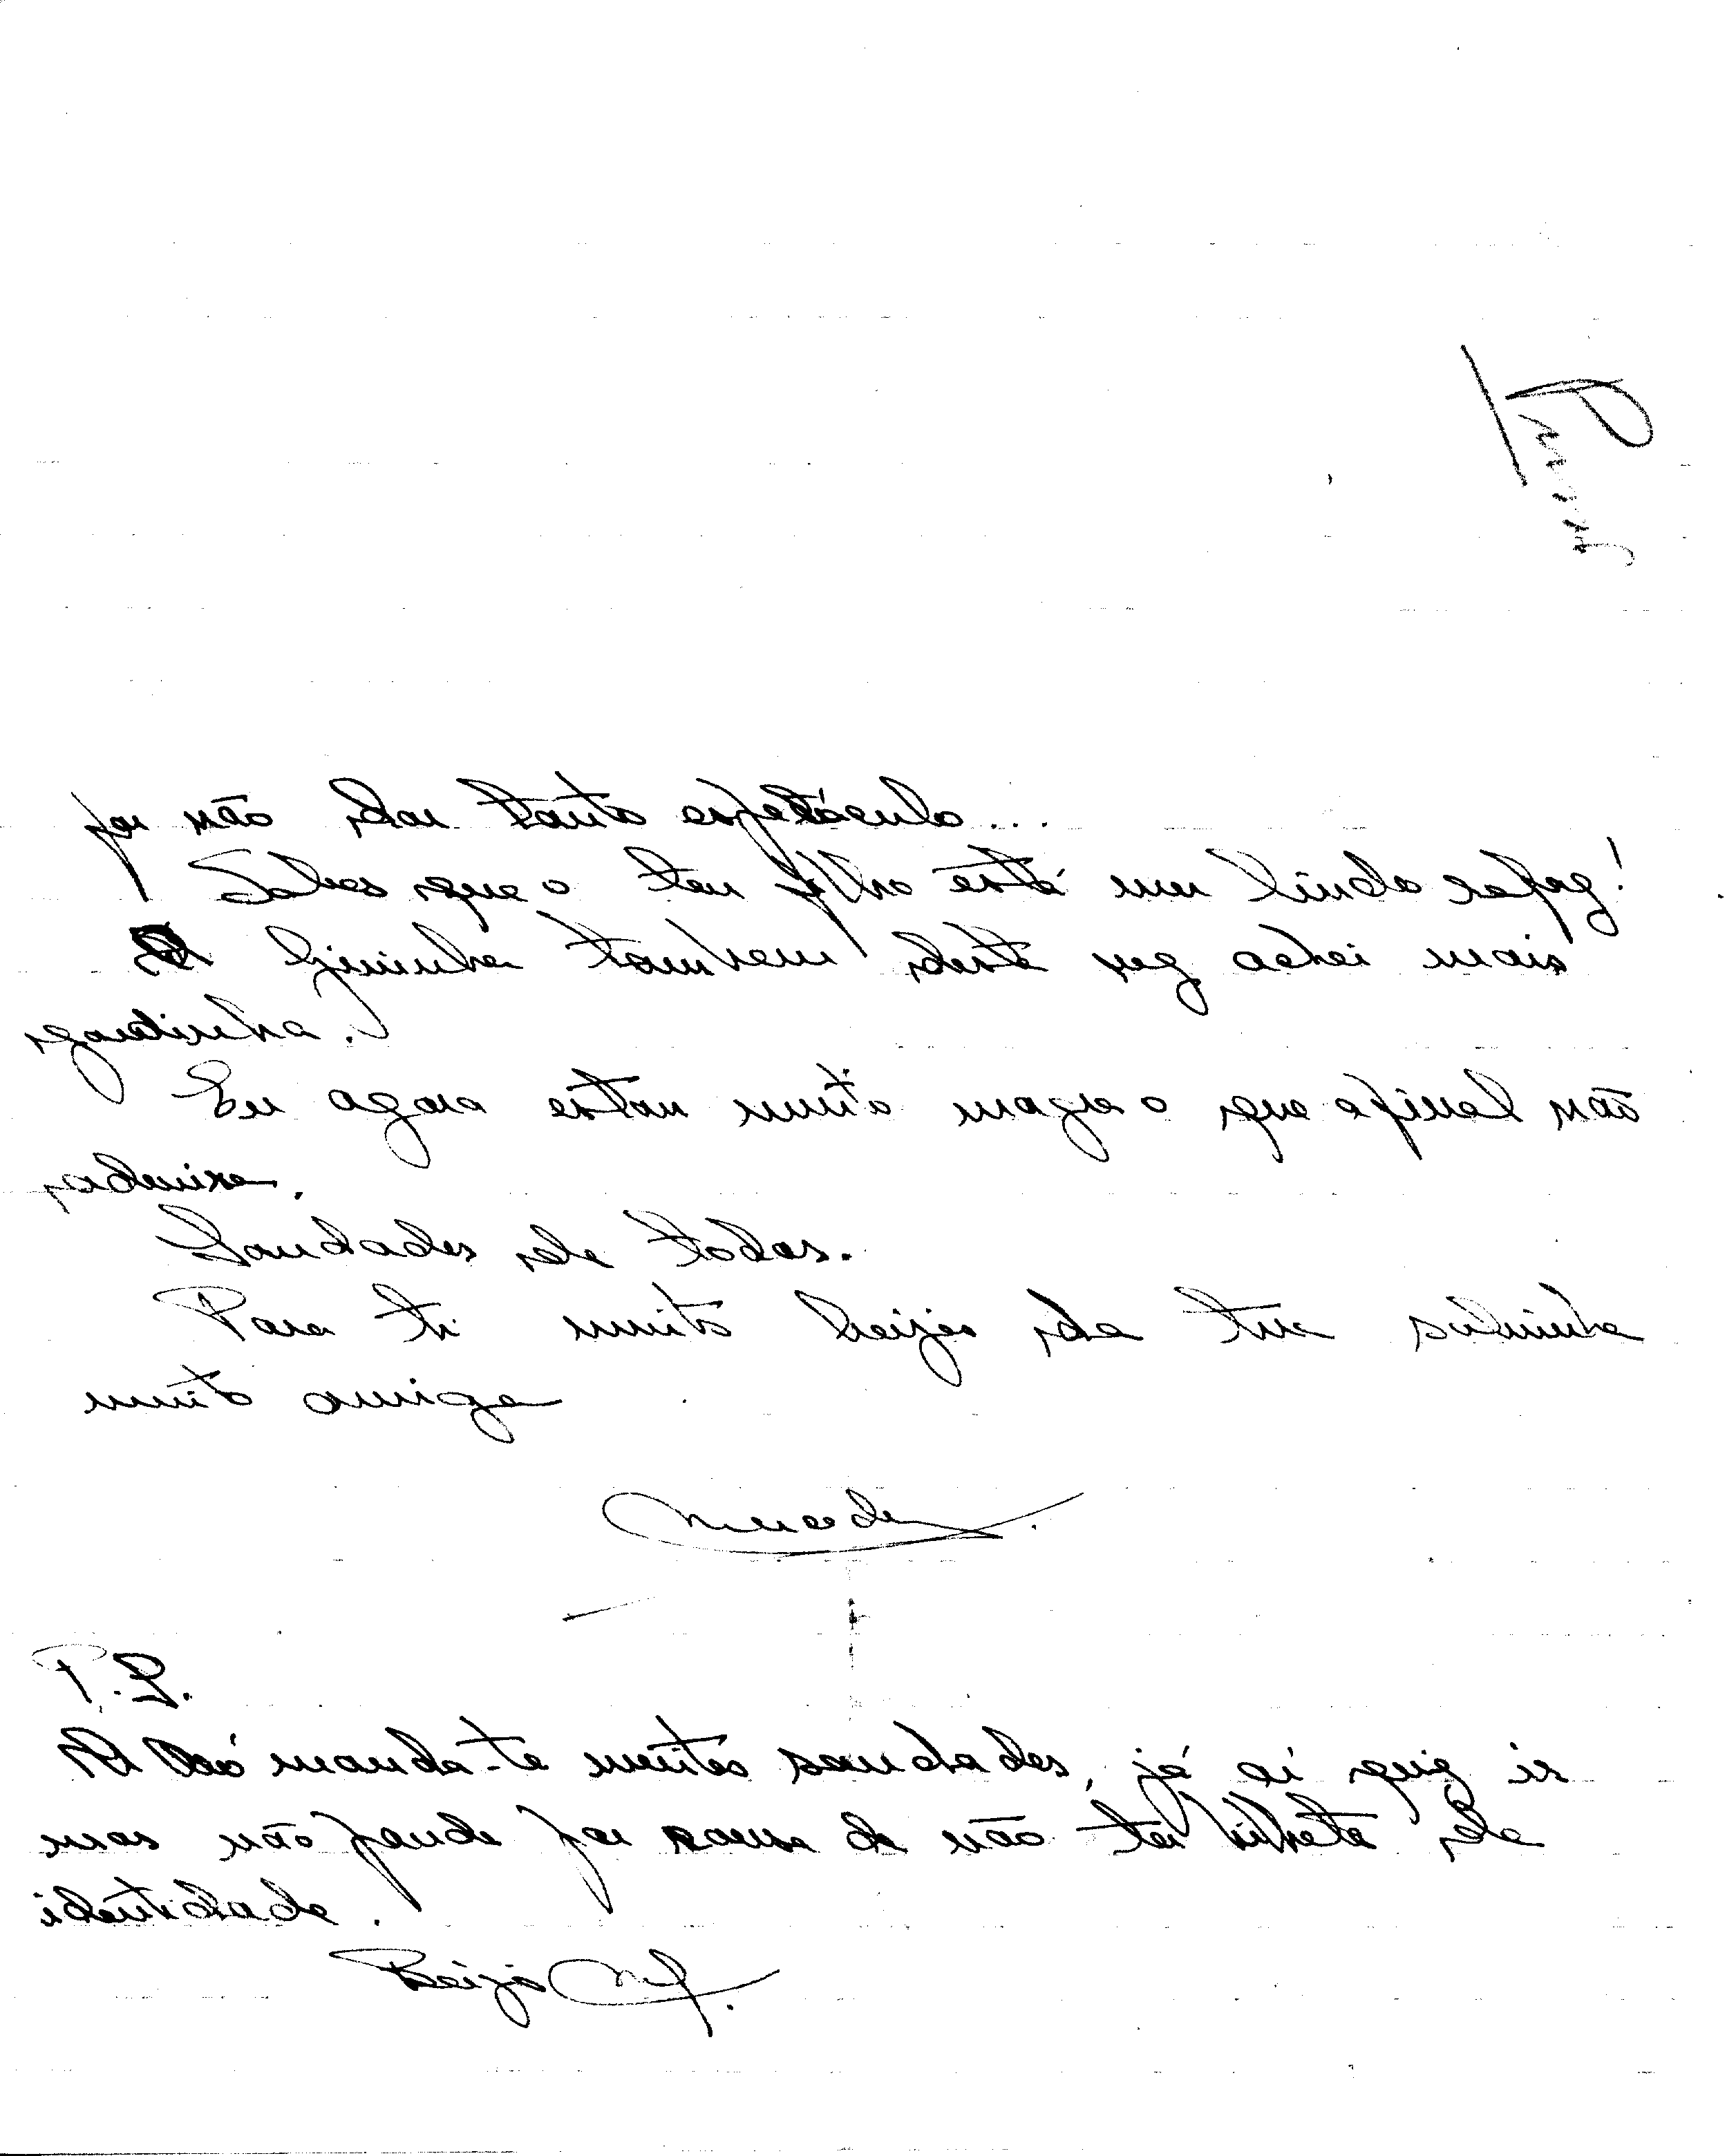 por não dar tanto espetáculo...
Sabes que o teu filho está um lindo rapaz!
A Gininha tambem desta vez achei mais
gordinha.
Eu agora estou muito magra o que afinal não
admira.
Saudades de todos.
Para ti muito beijos da tua sobrinha
muito amiga
Mercedes.
P.S.
A Avó manda-te muitas saudades, já aí quiz ir
mas não poude por causa de não ter bilhete de
identidade.
Beijo M.